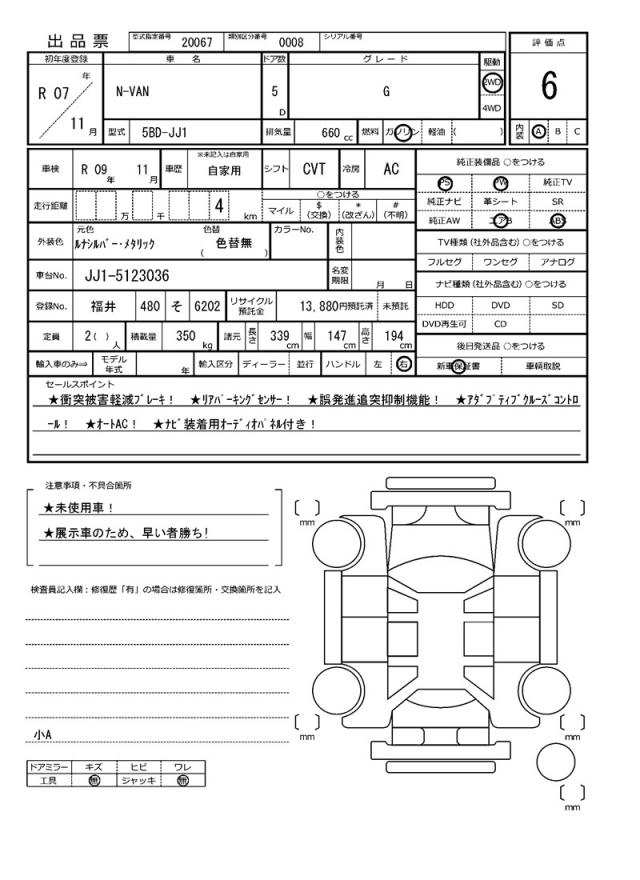 出品票 型式指定番号 20067 類別区分番号 0008 シリアル番号
評価点
初年度登録 車名 ドア数 グレード 駆動
R 07 年 N-VAN 5 D G 2WD 6
4WD
11 月 型式 5BD-JJ1 排気量 660 cc 燃料 ガソリン 軽油 ( ) 内装 A B C
車検 R 09 年 11 月 車歴 ※未記入は自家用 自家用 シフト CVT 冷房 AC
純正装備品 ○をつける
PS PW 純正TV
走行距離 万 千 4 km ○をつける
マイル $(交換) *(改ざん) #(不明)
純正ナビ 革シート SR
純正AW エアB ABS
外装色 元色 ルナシルバー・メタリック 色替 ( 色替無 ) カラーNo. 内装色
TV種類 (社外品含む) ○をつける
フルセグ ワンセグ アナログ
車台No. JJ1-5123036 名変期限 月 日
ナビ種類 (社外品含む) ○をつける
登録No. 福井 480 そ 6202 リサイクル預託金 13,880円預託済 未預託
HDD DVD SD
DVD再生可 CD
定員 2( ) 人 積載量 350 kg 諸元 長さ 339 cm 幅 147 cm 高さ 194 cm
後日発送品 ○をつける
輸入車のみ⇒ モデル年式 年 輸入区分 ディーラー 並行 ハンドル 左 右
新車保証書 車輌取説
セールスポイント
★衝突被害軽減ブレーキ! ★リアパーキングセンサー! ★誤発進追突抑制機能! ★アダプティブクルーズコントロ
ール! ★オートAC! ★ナビ装着用オーディオパネル付き!
注意事項・不具合箇所
★未使用車!
★展示車のため、早い者勝ち!
検査員記入欄:修復歴「有」の場合は修復箇所・交換箇所を記入
小A
ドアミラー キズ ヒビ ワレ
工具 無 ジャッキ 無
mm
mm
mm
mm
mm